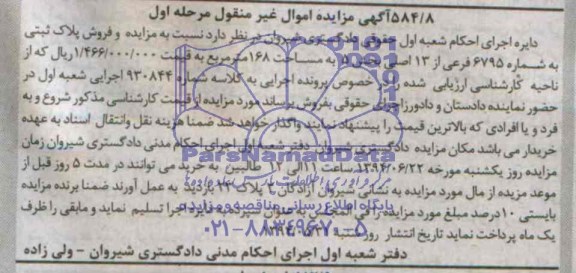 ۵۸۴/۸آگهی مزایده اموال غیر منقول مرحله اول
دایره اجرای احکام شعبه اول حقوقی دادگستری شیروان در نظر دارد نسبت به مزایده و فروش پلاک ثبتی
به شماره ۶۷۹۵ فرعی از ۱۳ اصلی ۵ به مساحت ۱۶۸مترمربع به قیمت ۱/۴۶۶/۰۰۰/۰۰۰ریال که از
ناحیه کارشناسی ارزیابی شده در خصوص پرونده اجرایی به کلاسه شماره ۹۳۰۸۴۴ اجرایی شعبه اول در
حضور نماینده دادستان و دادورز اجرای حقوقی بفروش برساند مورد مزایده از قیمت کارشناسی مذکور شروع و به
فرد و یا افرادی که بالاترین قیمت را پیشنهاد نمایند واگذار خواهد شد ضمنا هزینه نقل وانتقال اسناد به عهده
خریدار می باشد مکان مزایده دادگستری شیروان دفتر شعبه اول اجرای احکام مدنی دادگستری شیروان زمان
مزایده روز یکشنبه مورخه ۱۳۹۴/۰۶/۲۲ ساعت ۱۱الی ۱۲ طالبین به خرید می توانند در مدت ۵ روز قبل از
موعد مزایده از مال مورد مزایده به نشانی شیروان پلاک به عمل آورند ضمنا برنده مزایده
بایستی ۱۰درصد مبلغ مورد مزایده را فی المجلس به عنوان سپرده به دایره اجرا تسلیم نماید و مابقی را ظرف
یک ماه پرداخت نماید تاریخ انتشار روز
دفتر شعبه اول اجرای احکام مدنی دادگستری شیروان - ولی زاده
ParsNamadData
پایگاه اطلاع رسانی مناقصه و مزایده
۰۲۱-۸۸۳۴۹۶۷۰-۵